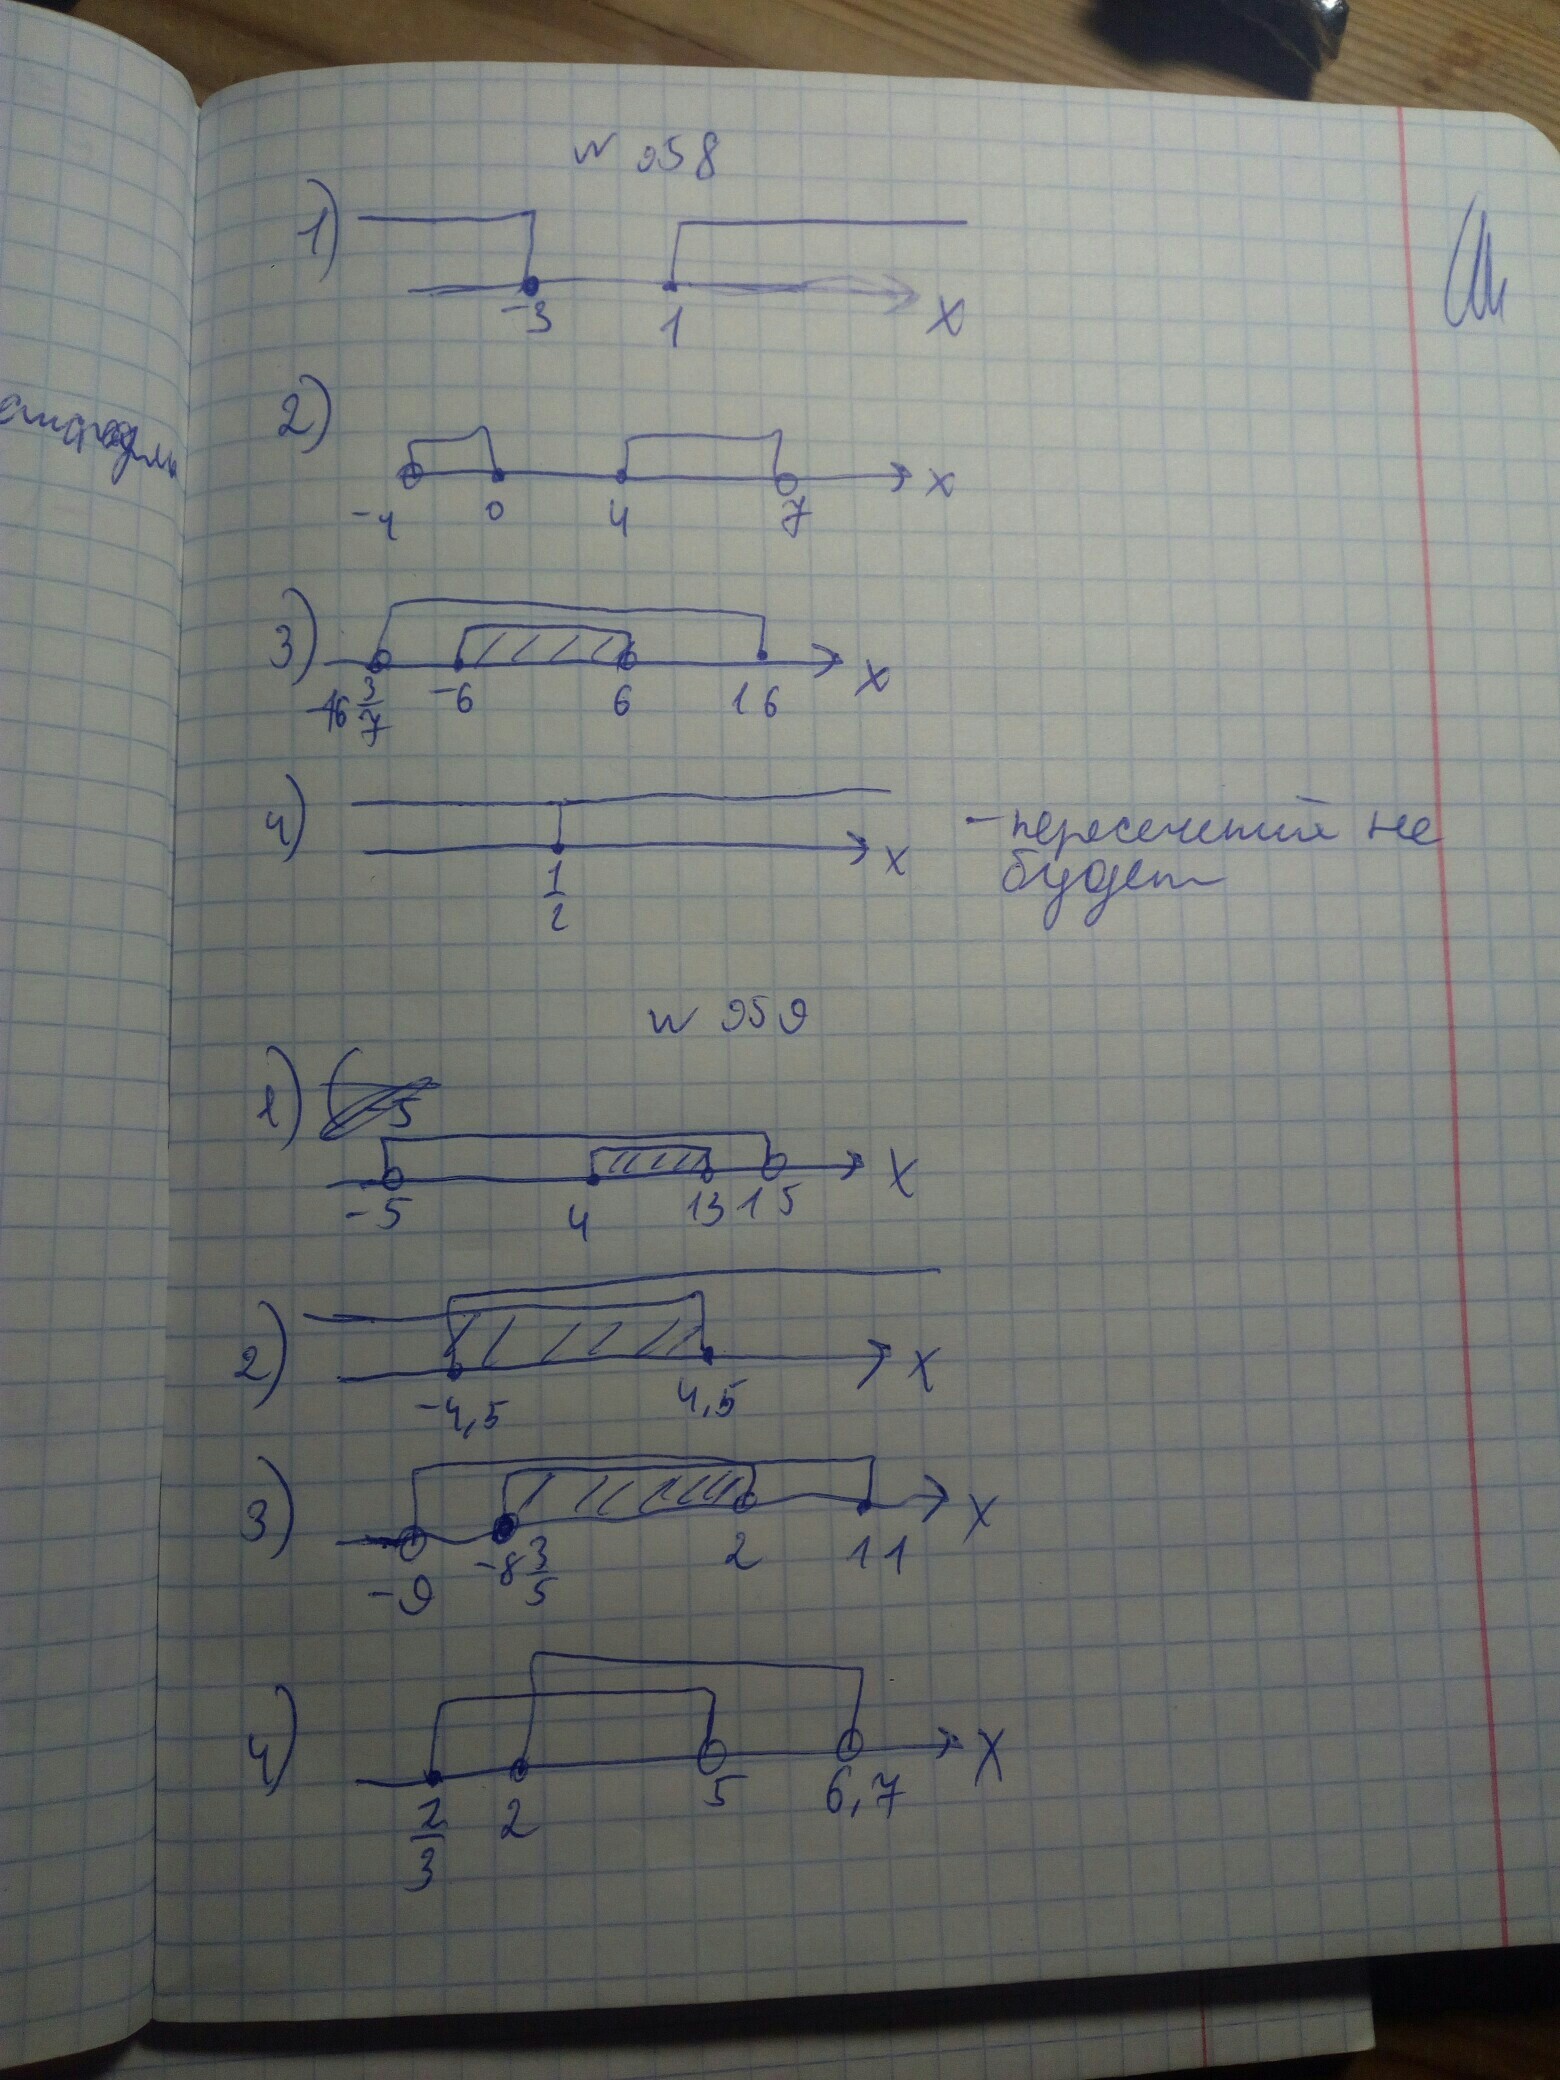 N 958
1)
-3 1 x
2)
-4 0 4 7 x
3)
-16 3/7 -6 6 16 x
4)
- пересечений не
будет
1/2 x
N 959
1)
-5
-5 4 13 15 x
2)
-4,5 4,5 x
3)
-9 -8 3/5 2 11 x
4)
2/3 2 5 6,7 x